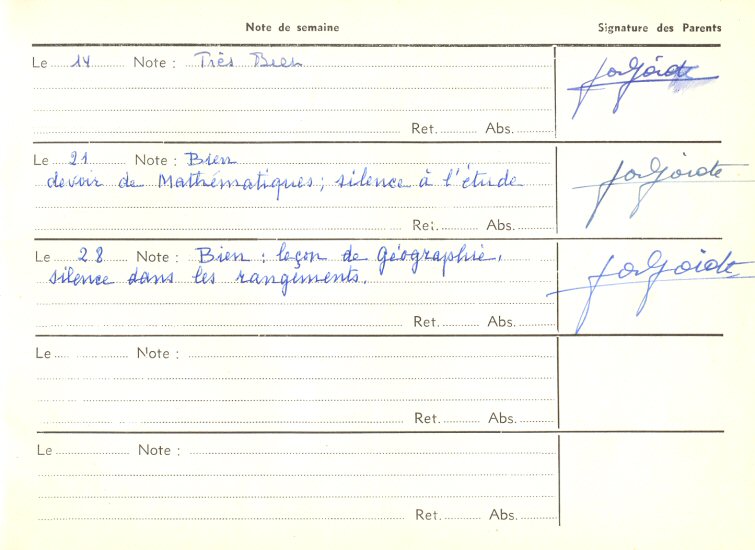 Note de semaine Signature des Parents
Le 14 Note : Très Bien
Ret. Abs.
Le 21 Note : Bien
devoir de Mathématiques ; silence à l'étude
Ret. Abs.
Le 28 Note : Bien : leçon de Géographie,
silence dans les rangements.
Ret. Abs.
Le Note :
Ret. Abs.
Le Note :
Ret. Abs.